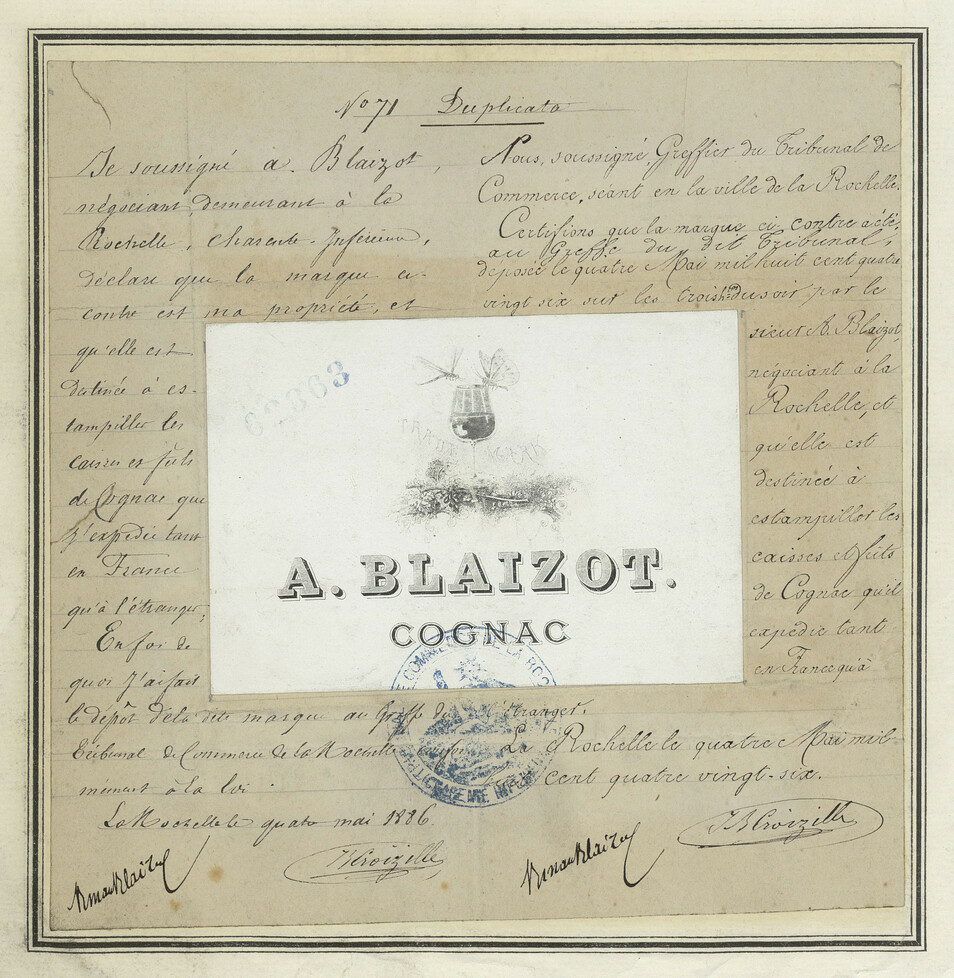 No 71 Duplicata
Je soussigné A. Blaizot,
négociant, demeurant à la
Rochelle, Charente-Inférieure,
déclare que la marque ci-
contre est ma propriété, et
qu'elle est
destinée à es-
tampiller les
caisses et fûts
de Cognac que
j'expédie tant
en France
qu'à l'étranger,
En foi de
quoi j'ai fait
le dépôt de la dite marque au Greffe du
Tribunal de Commerce de la Rochelle confor-
mément à la loi.
La Rochelle le quatre mai 1886.
Nous, soussigné, Greffier du Tribunal de
Commerce, séant en la ville de la Rochelle,
Certifions que la marque ci contre a été,
au Greffe du dit Tribunal,
déposée le quatre Mai mil huit cent quatre
vingt six sur les trois h du soir par le
sieur A. Blaizot,
négociant à la
Rochelle, et
qu'elle est
destinée à
estampiller les
caisses et fûts
de Cognac qu'il
expédie tant
en France qu'à
l'étranger.
La Rochelle le quatre Mai mil
huit cent quatre vingt-six.
62863
A. BLAIZOT.
COGNAC
DE COMMERCE DE LA ROC
Blaizot
Croizille
Blaizot
Croizille